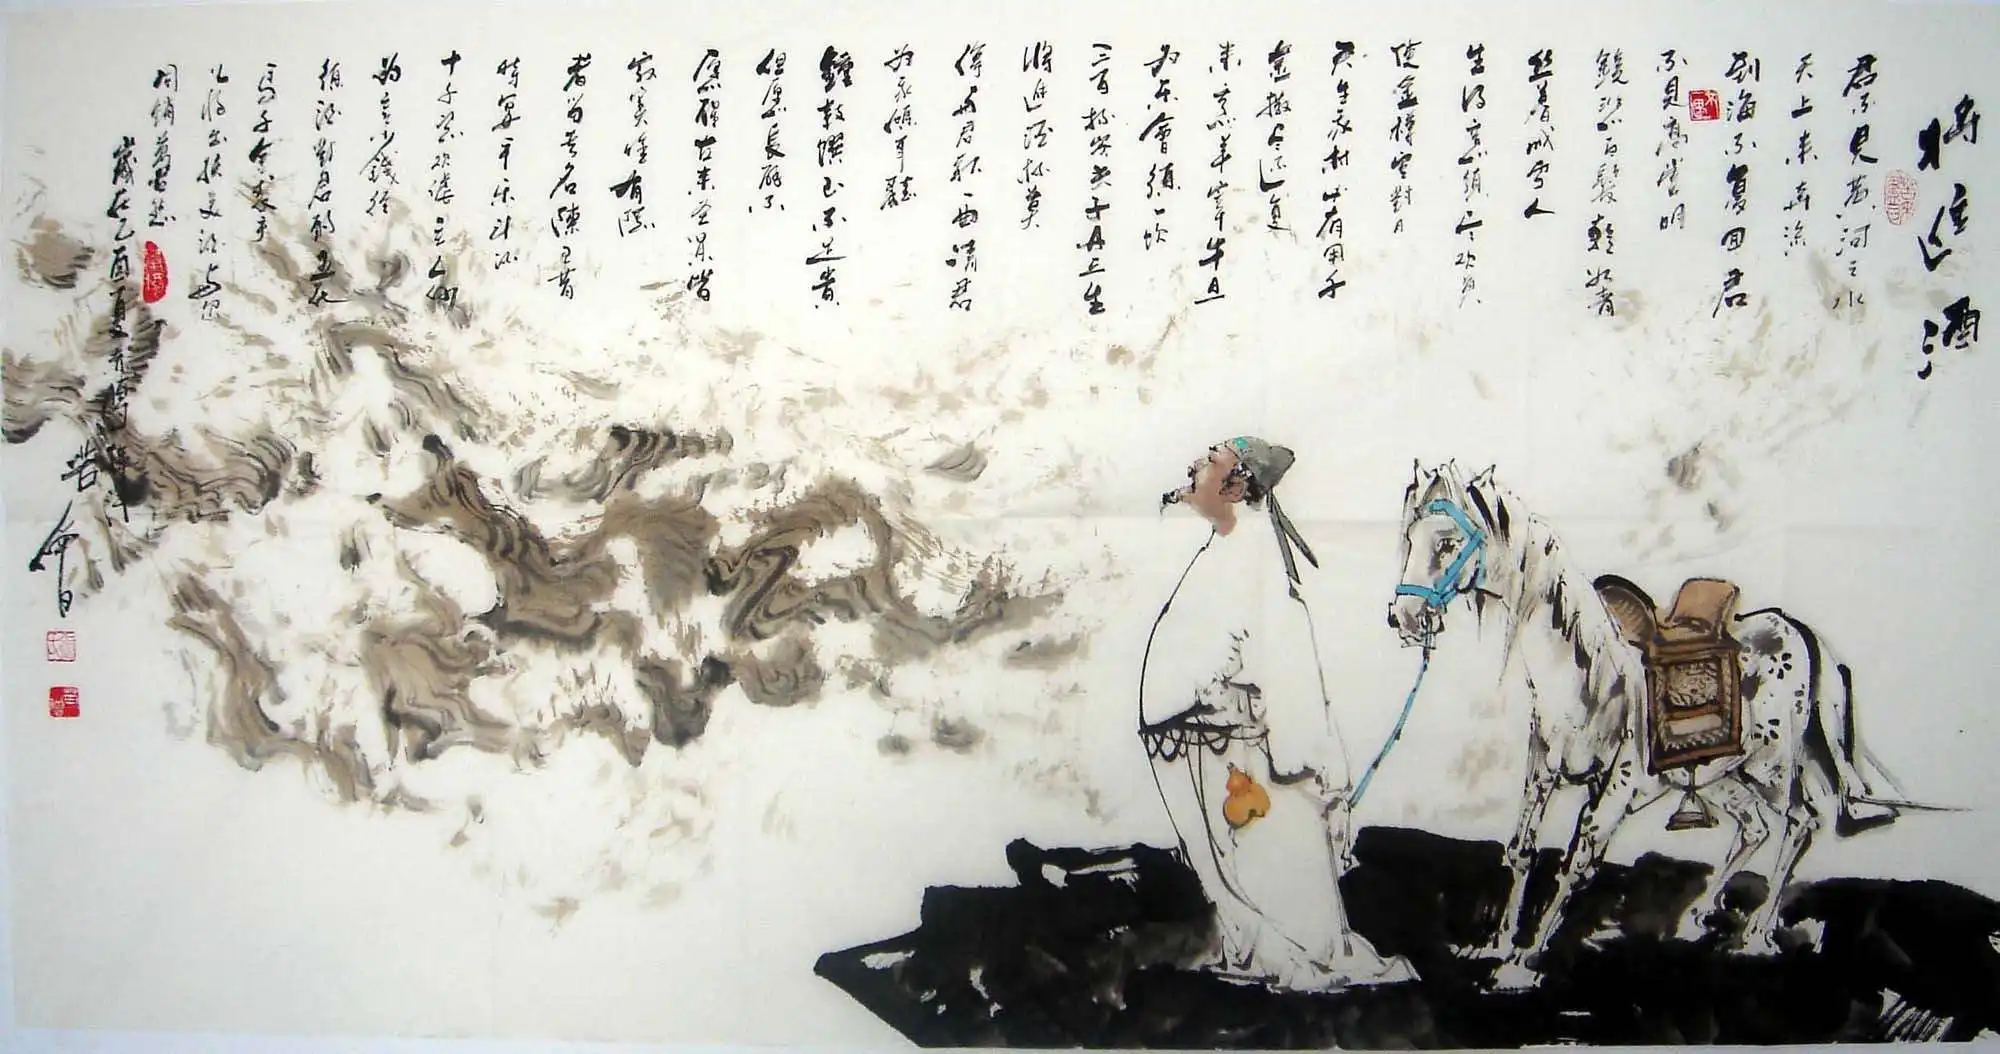 將進酒
君不見黃河之水
天上來奔流
到海不復回君
不見高堂明
鏡悲白髮朝如青
絲暮成雪人
生得意須尽欢莫
使金樽空對月
天生我材必有用千
金散尽还復
來烹羊宰牛且
為樂會須一飲
三百杯岑夫子丹丘生
將進酒杯莫
停與君歌一曲請君
為我傾耳聽
鐘鼓饌玉不足貴
但願長醉不
願醒古來聖賢皆
寂寞唯有飲
者留其名陳王昔
時宴平樂斗酒
十千恣欢謔主人何
為言少錢徑
須沽對君酌五花
馬千金裘呼
兒將出換美酒與爾
同銷萬古愁
歲在乙酉夏